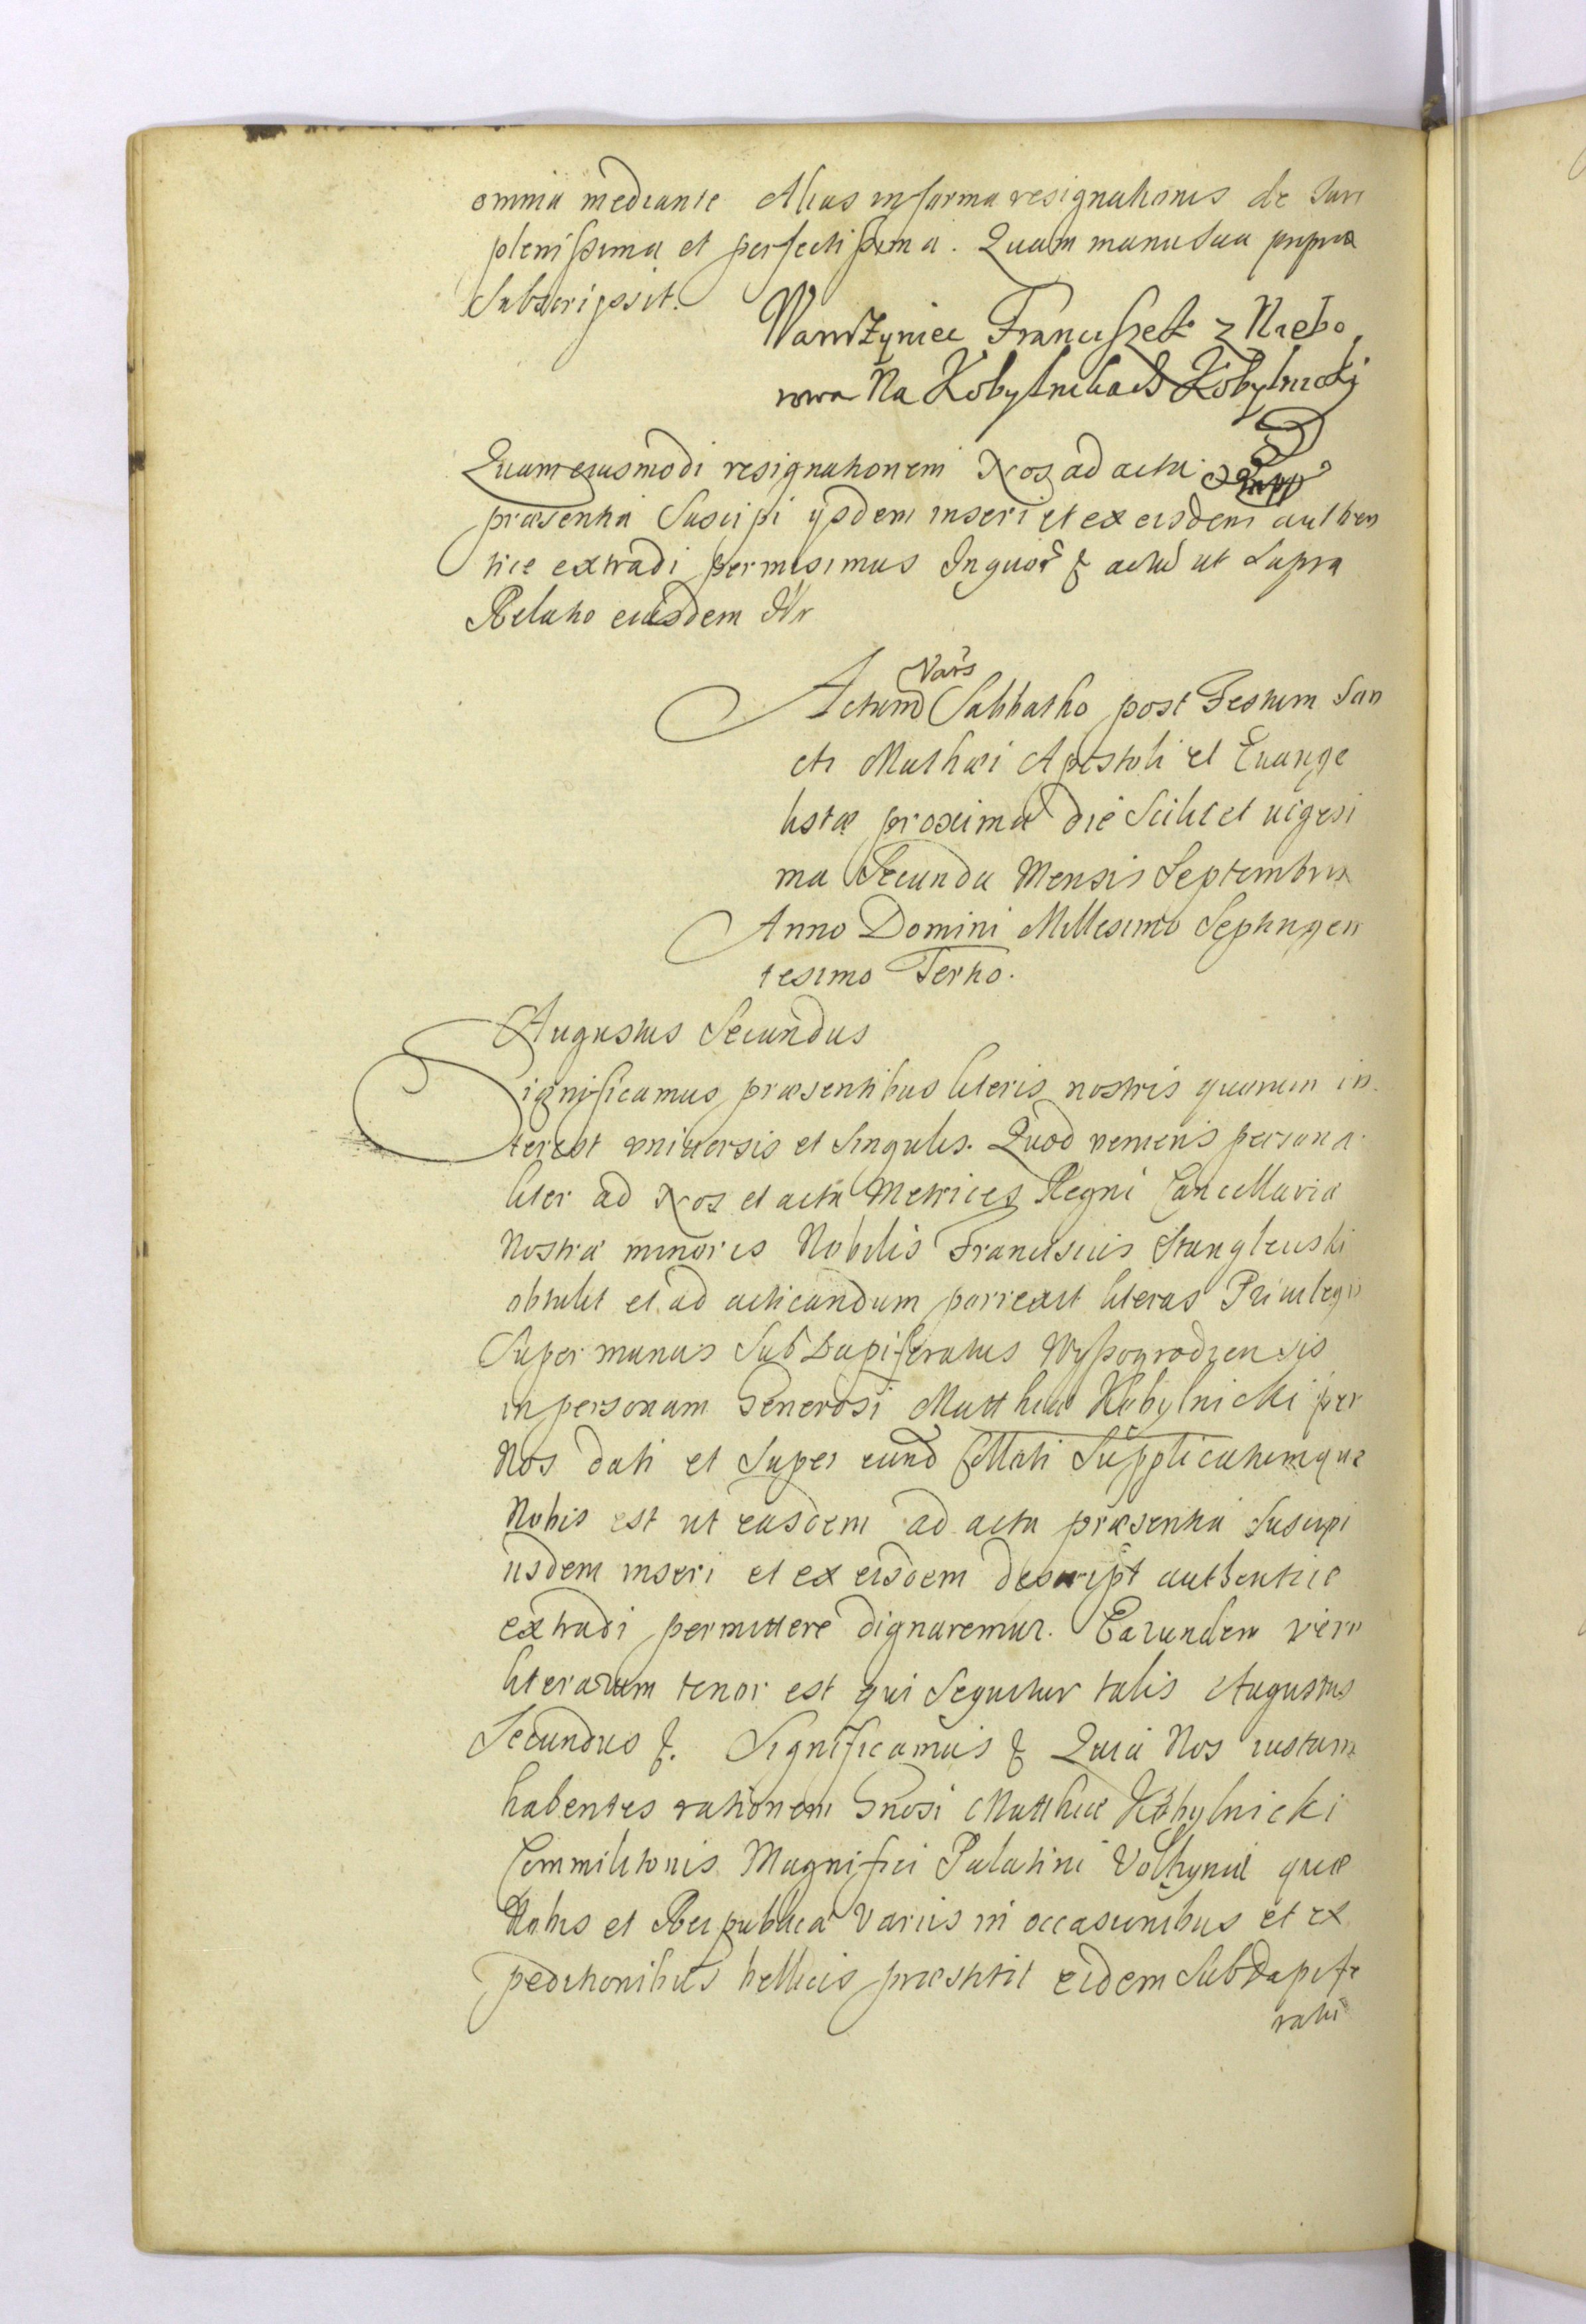 omnia mediante Alias in forma resignationis de Iure
plenissima et perfectissima. Quam manu sua propria
Subscripsit.
Wawrzyniec Franciszek z Niebo
rowa Na Kobylnikach Kobylnicki
Quam eiusmodi resignationem Nos ad acta
præsentia Suscipi ijsdem inseri et ex eisdem authen
tice extradi permisimus In quor & actū ut Supra
Relatio eiusdem Ilr
Vars
Actum Sabbatho post Festum San
cti Mathæi Apostoli et Euange
listæ proxima die Scilicet uigesi
ma Secunda Mensis Septembris
Anno Domini Millesimo Septingen
tesimo Tertio.
Augustus Secundus
Significamus præsentibus literis nostris quorum in
terest vniuersis et Singulis. Quod veniens persona
liter ad Nos et acta Metrices Regni Cancellariæ
Nostræ minoris Nobilis Franciscus Stanglewski
obtulit et ad acticandum porrexit literas Priuilegii
Super munus SubDapiferatus Wyszogrodzensis
in personam Generosi Matthiæ Kobylnicki per
Nos dati et Super eund Collati Supplicatumque
Nobis est ut easdem ad acta præsentia Suscipi
iisdem inseri et ex eisdem descript authentice
extradi permittere dignaremur. Earundem vero
literarum tenor est qui Sequitur talis Augustus
Secundus &. Significamus & Quia Nos iustam
habentes rationem Gnosi Matthiæ Kobylnicki
Commilitonis Magnifici Palatini Volhyniæ quæ
Nobis et Reipublicæ Variis in occasionibus et ex
peditionibus bellicis præstitit eidem SubDapife
ratū